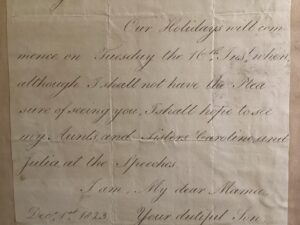 Our Holidays will com
mence on Tuesday the 16th Inst when,
although I shall not have the Plea
sure of seeing you, I shall hope to see
my Aunts and Sisters Caroline and
Julia at the Speeches
I am, My dear Mama
Decr 1st 1823 Your dutiful Son